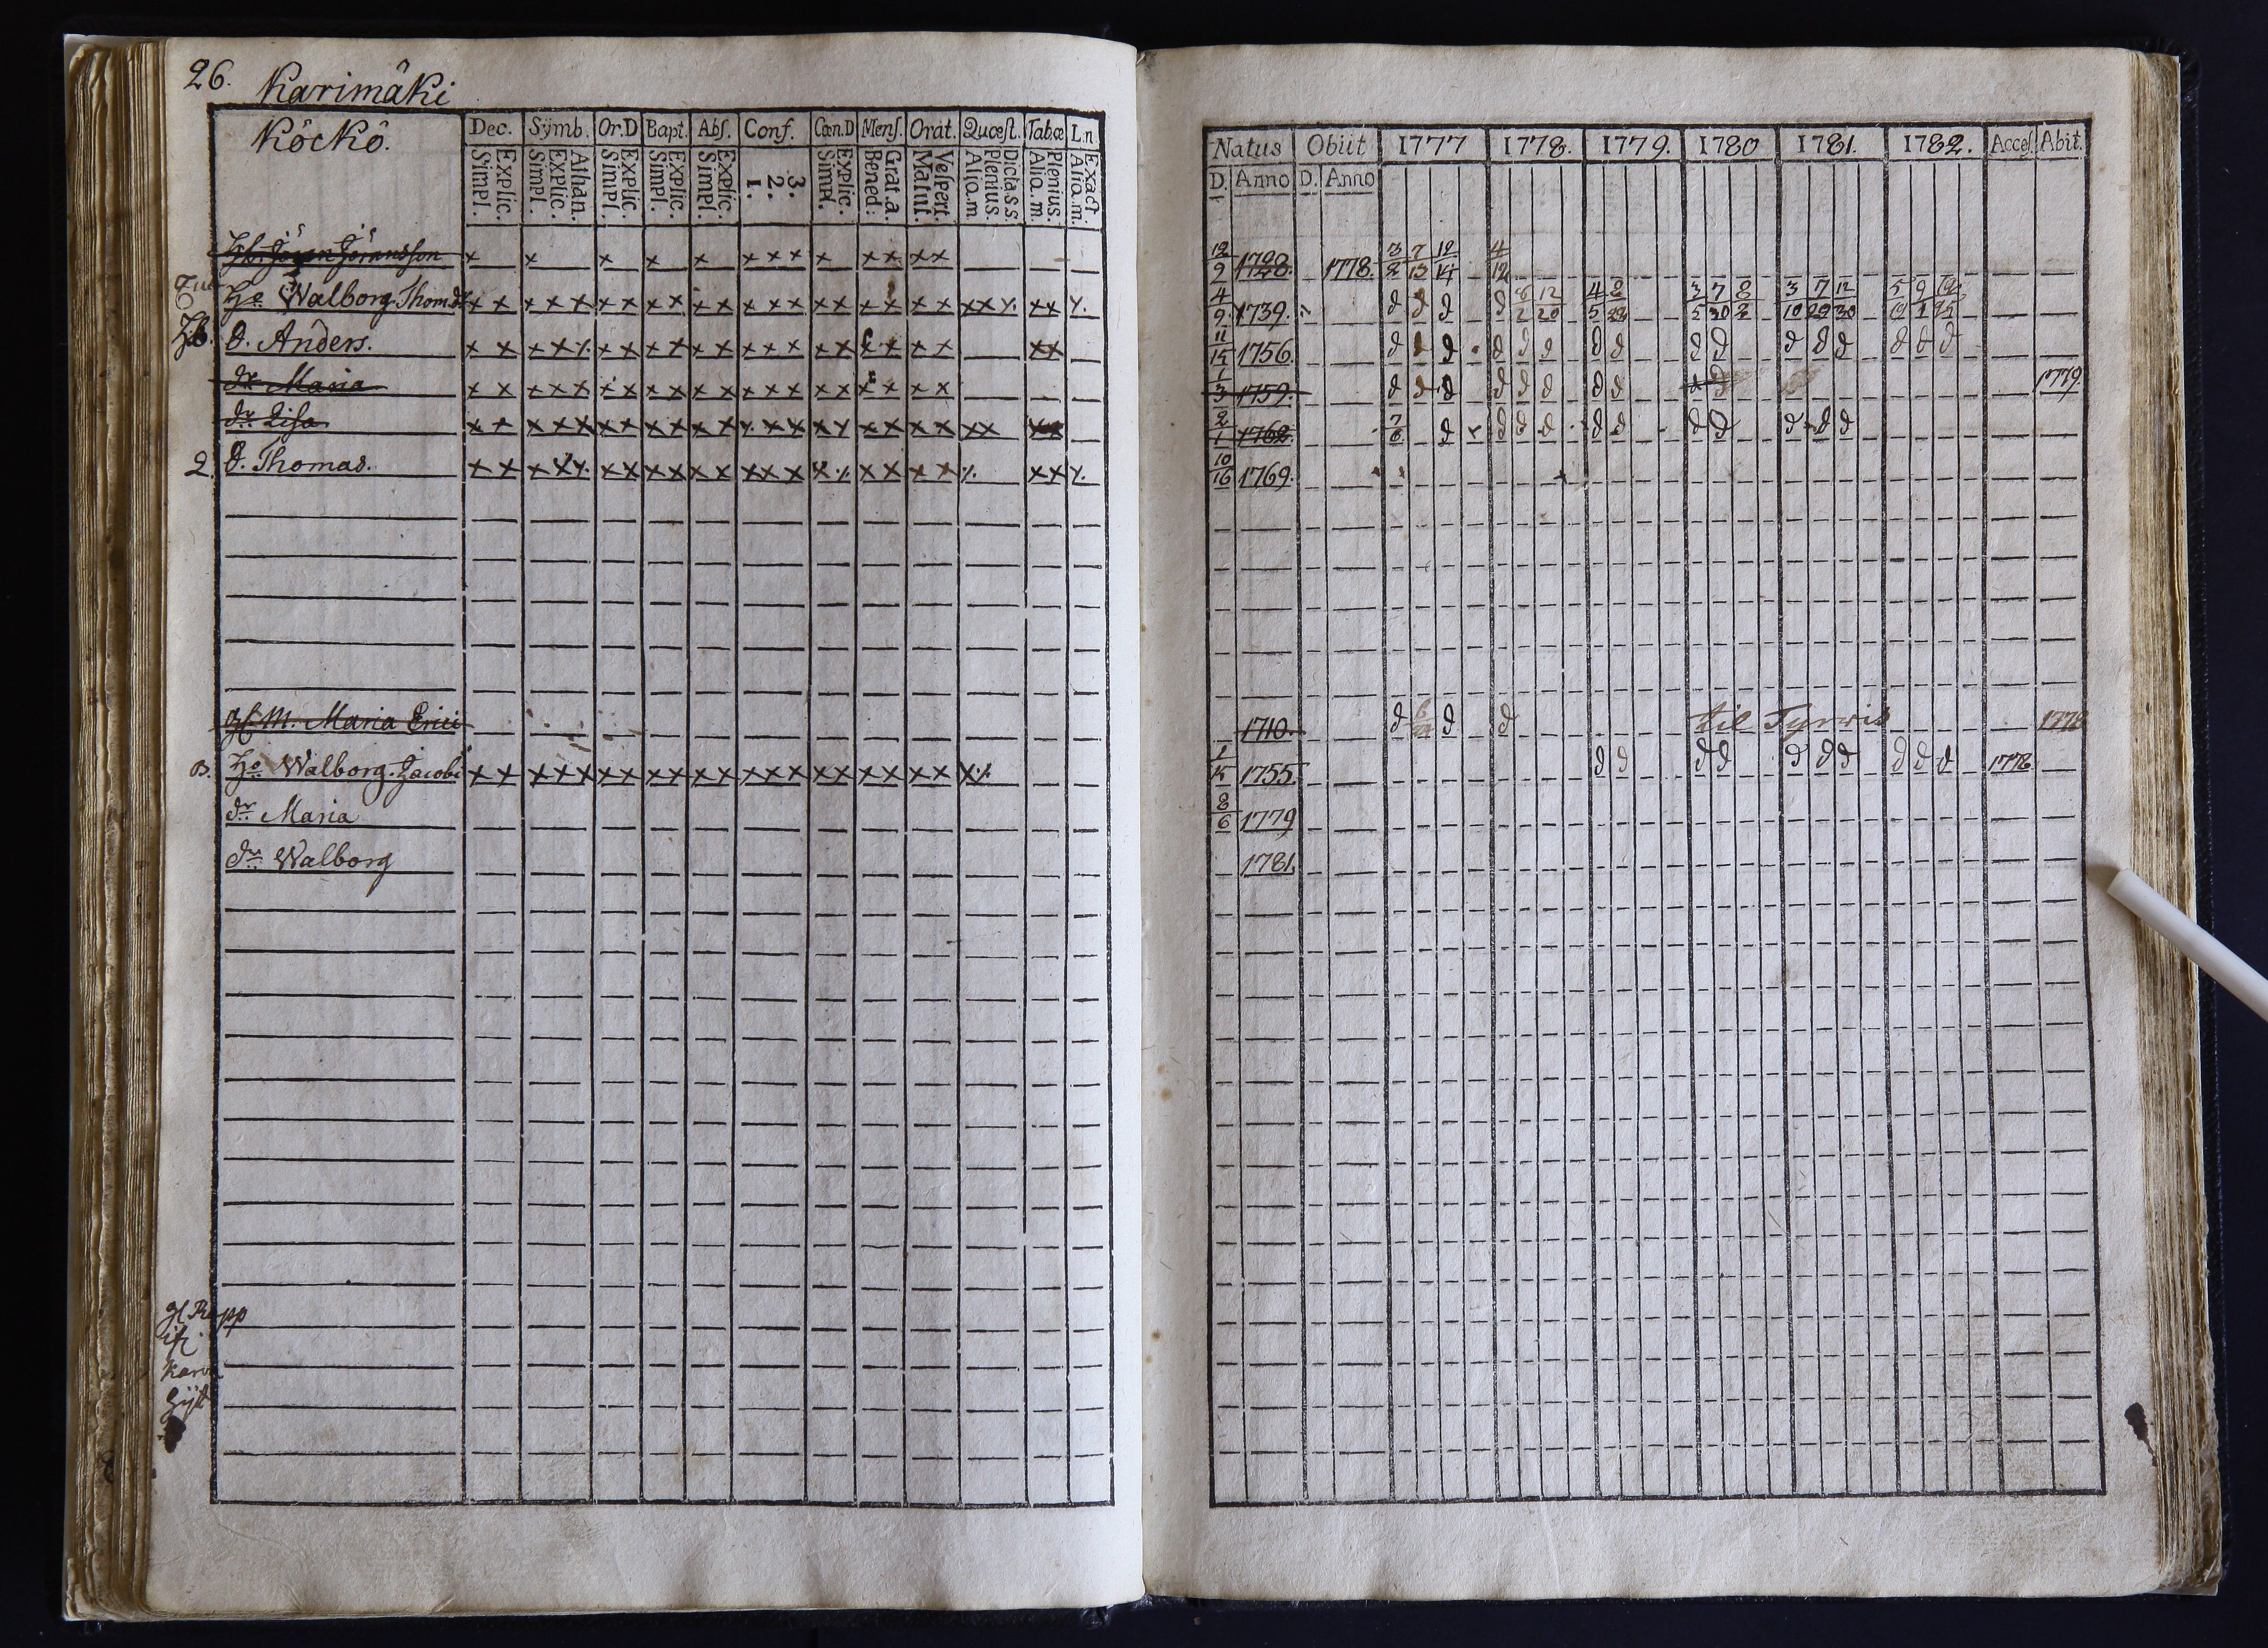 26. Karimäki
Köckö.
Dec. Symb. Or.D Bapt. Abs. Conf. Cœn.D Mens. Orat. Quæst. Tabœ L.n
Simpl. Explic. Simpl. Explic. Athan. Simpl. Explic. Simpl. Explic. Simpl. Explic. 1. 2. 3. Simpl. Explic. Bened: Grat.a. Matut. Vespert. Aliq.m Plenius. Dicta s.s Aliq.m. Plenius. Aliq.m. Exact.
Hb. Jöran Jöransson x x x x x x x x x x x x x
Ho Walborg Thomdr x x x x x x x x x x x x x x x x x x x x x x x
Hb. d. Anders. x x x x x x x x x x x x x x x x x x x x x
dr Maria x x x x x x x x x x x x x x x x x x x x
dr Lisa x x x x x x x x x x x x x x x x x x x x x x x x
2. d. Thomas. x x x x x x x x x x x x x x x x x x x x x x
gl. M. Maria Erici
B. Ho Walborg Jacobi x x x x x x x x x x x x x x x x x x x x x
dr Maria
dr Walborg
gl Rapp
Natus Obiit 1777 1778. 1779. 1780 1781. 1782. Acces. Abit.
D. Anno D. Anno
12/9 1728. 1778. 3/2 7/13 12/14 4/12
4/9 1739. d d d d 8/2 12/20 4/5 3/5 7/30 8/2 3/10 7/29 12/30
11/15 1756. d d d d d d d d d d d d d d d d
1/3 1759. d d d d d d d d d 1779
2/1 1762. 7/6 d d d d d d d d d d d
10/16 1769.
1710. d d d til Tyrwis 1778
1/15 1755. d d d d d d d d d d 1778
8/6 1779
1781.